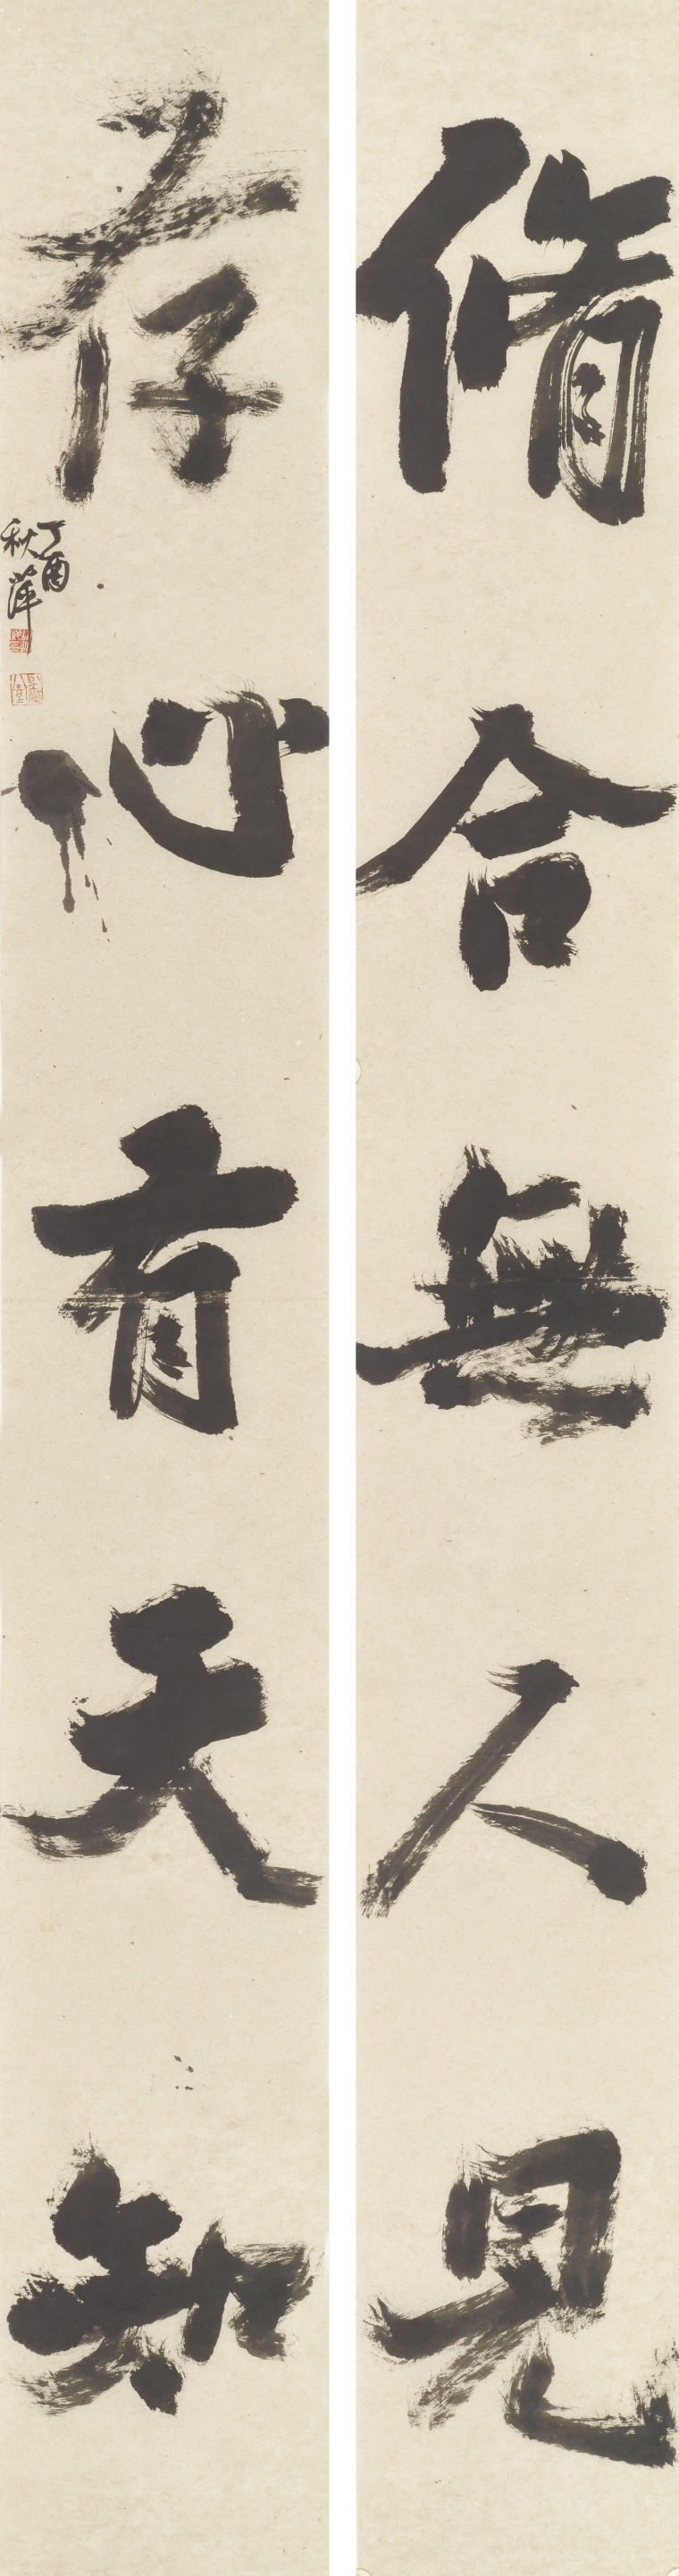 脩合無人見
存心有天知
丁酉
秋萍